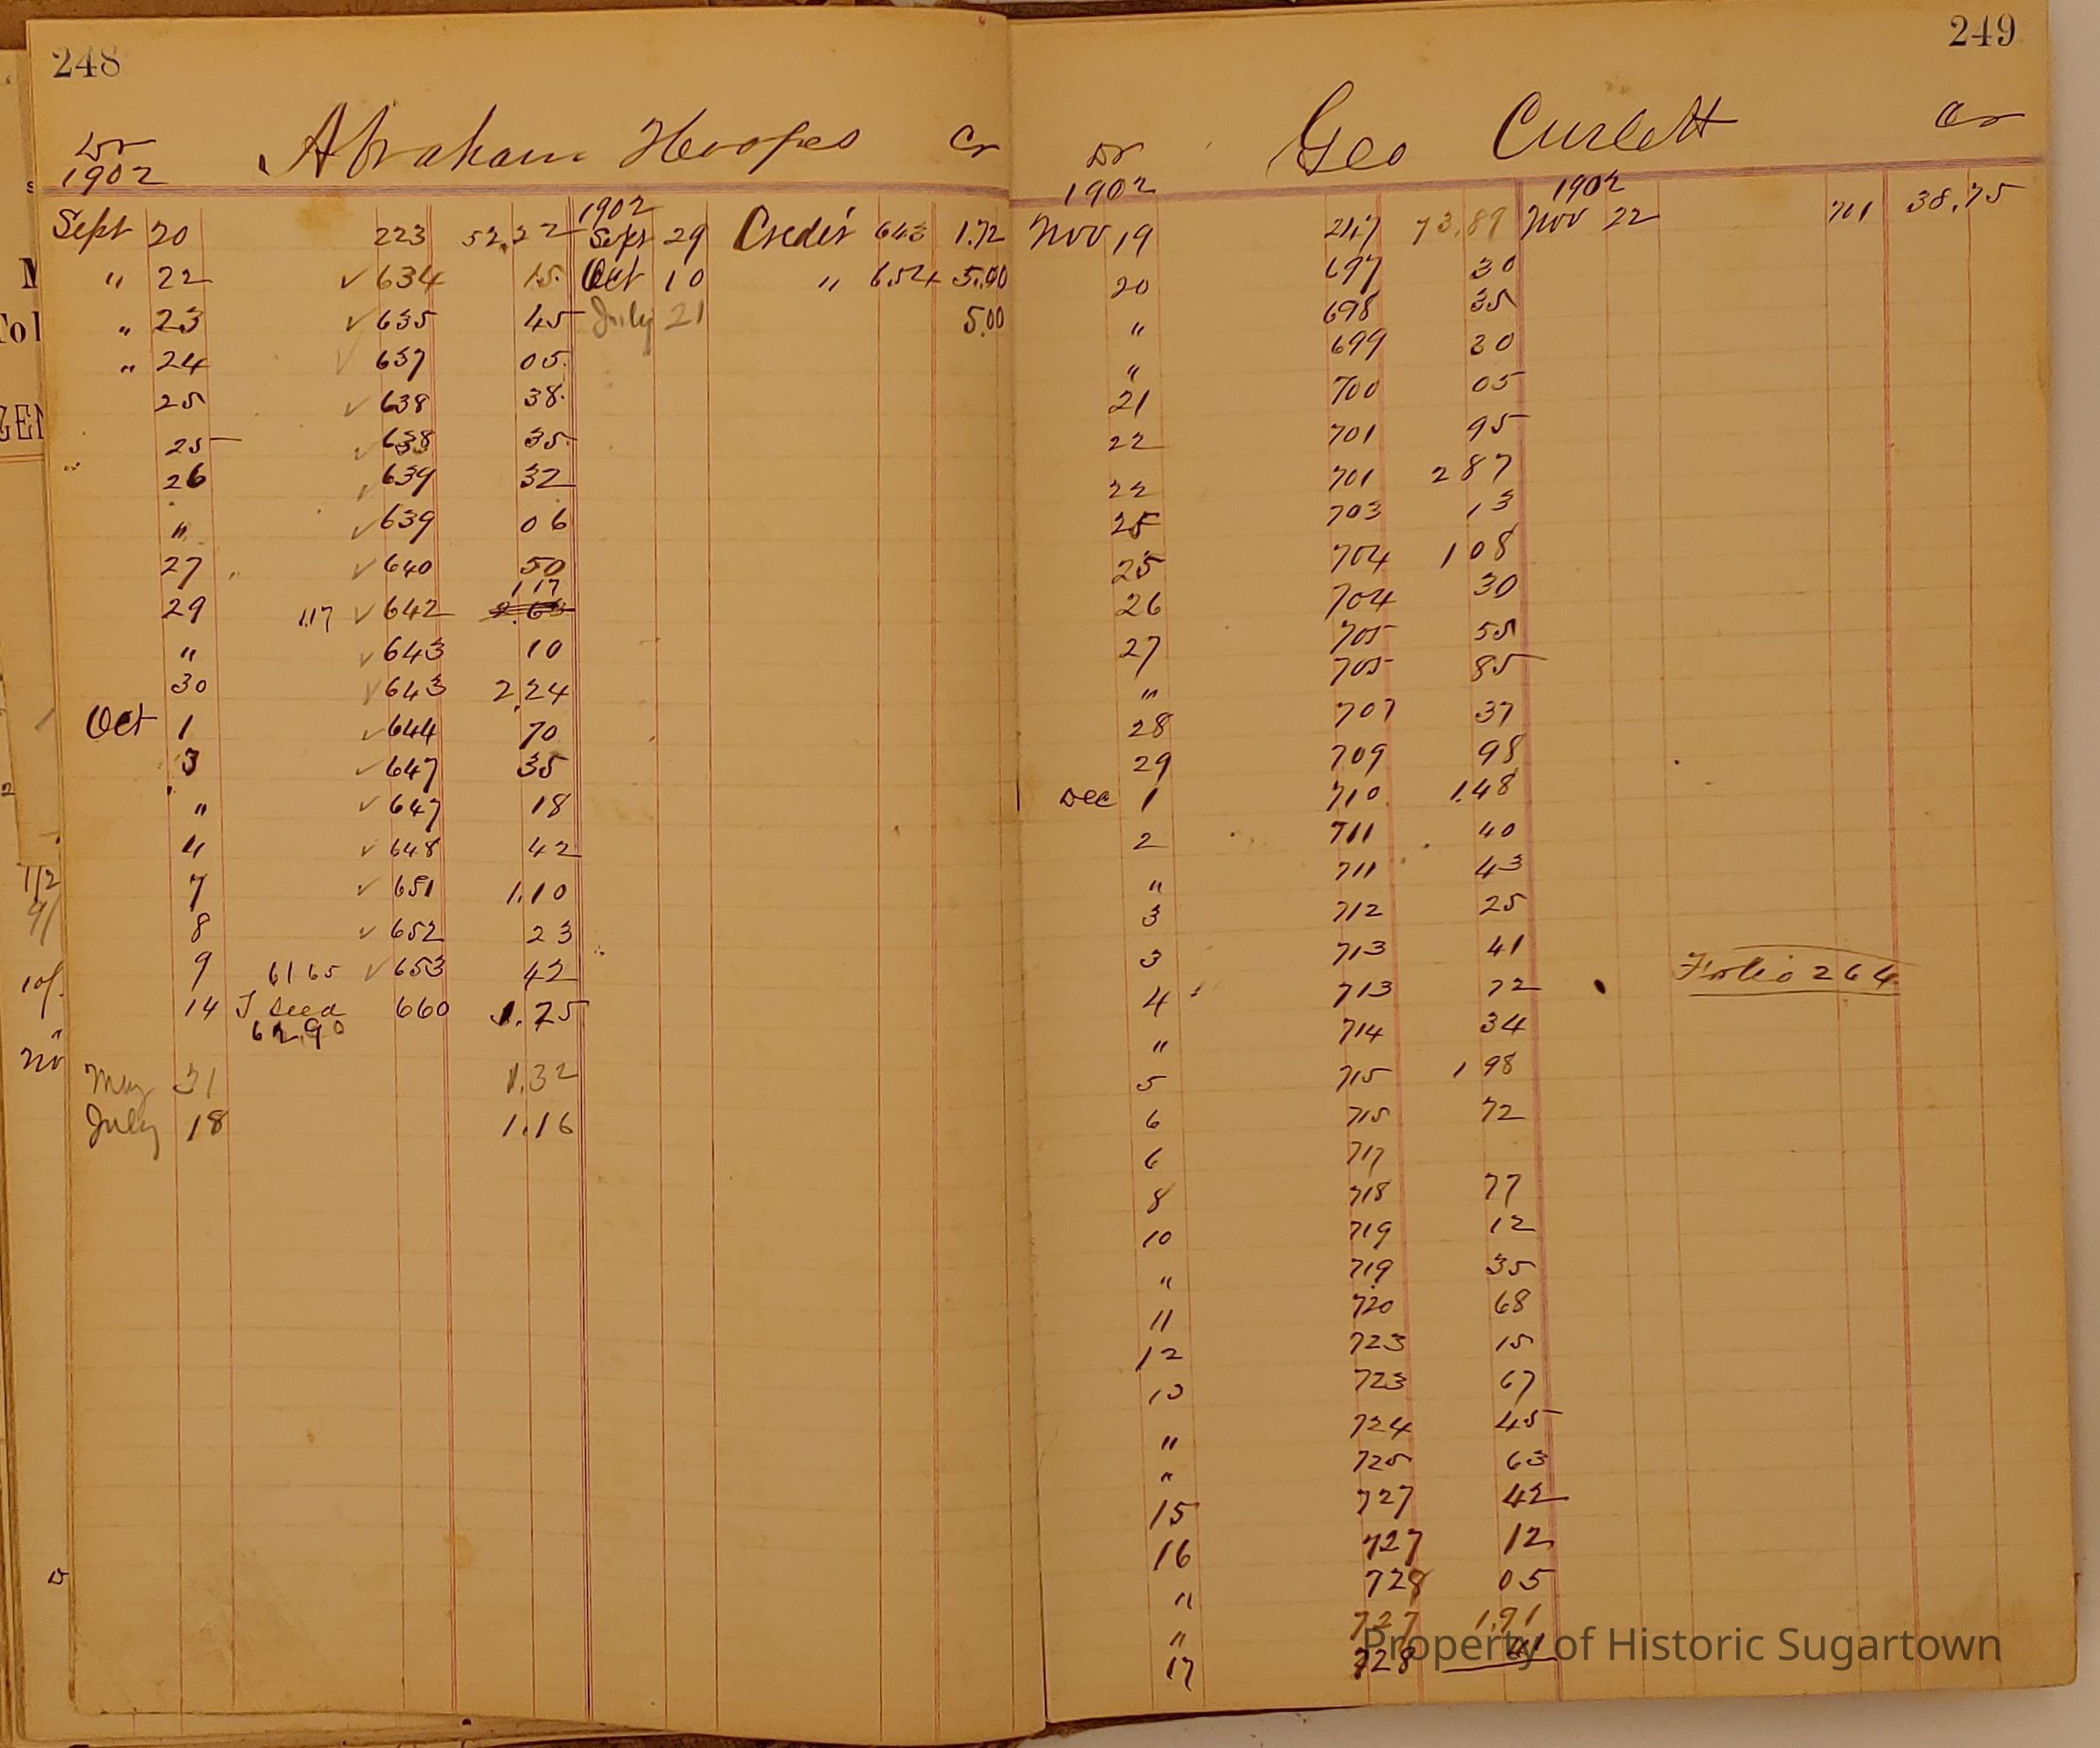 248
Dr Abraham Hoopes Cr
1902
1902
Sept 20 223 52.22 Sept 29 Credit 643 1.72
" 22 ✓ 634 15 Oct 10 " 654 5.00
" 23 ✓ 635 45 July 21 5.00
" 24 ✓ 637 05
25 ✓ 638 38
25 ✓ 638 35
" 26 ✓ 639 32
" ✓ 639 06
27 ✓ 640 50
1.17
29 1.17 ✓ 642
" ✓ 643 10
30 ✓ 643 2.24
Oct 1 ✓ 644 70
3 ✓ 647 35
" ✓ 647 18
4 ✓ 648 42
7 ✓ 651 1.10
8 ✓ 652 23
9 61 65 ✓ 653 42
14 T seed 660 1.25
62.90
May 31 1.32
July 18 1.16
249
Dr Geo Curlett Cr
1902 1902
Nov 19 247 73.89 Nov 22 701 38.75
20 697 30
" 698 35
" 699 20
21 700 05
22 701 95
22 701 2 87
25 703 13
25 704 1 08
26 704 30
27 705 55
" 705 85
28 707 37
29 709 98
Dec 1 710 1.48
2 711 40
" 711 43
3 712 25
3 713 41
Folio 264
4 713 72
" 714 34
5 715 1 98
6 715 72
6 717
8 718 77
10 719 12
" 719 35
11 720 68
12 723 15
13 723 67
" 724 45
" 725 63
15 727 42
16 727 12
" 728 05
" 727 1.91
17 728
Property of Historic Sugartown